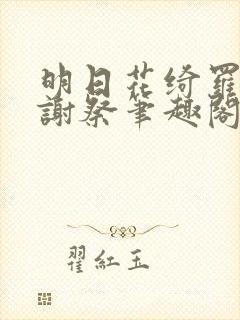 明日花绮罗
謝祭筆趣閣
翟紅玉